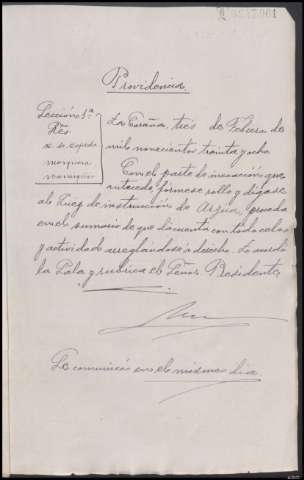 Providencia
Sección 1ª
Sres.
Mosquera
La Coruña, tres de Febrero de
mil novecientos treinta y ocho
Con el parte de incoación que
antecede, fórmese rollo y dígase
al Juez de instrucción de Arzúa, proceda
en el sumario de que da cuenta con todo celo
y actividad arreglándose a derecho. Lo mandó
la Sala y rubrica el Señor Presidente
Se comunicó en el mismo día